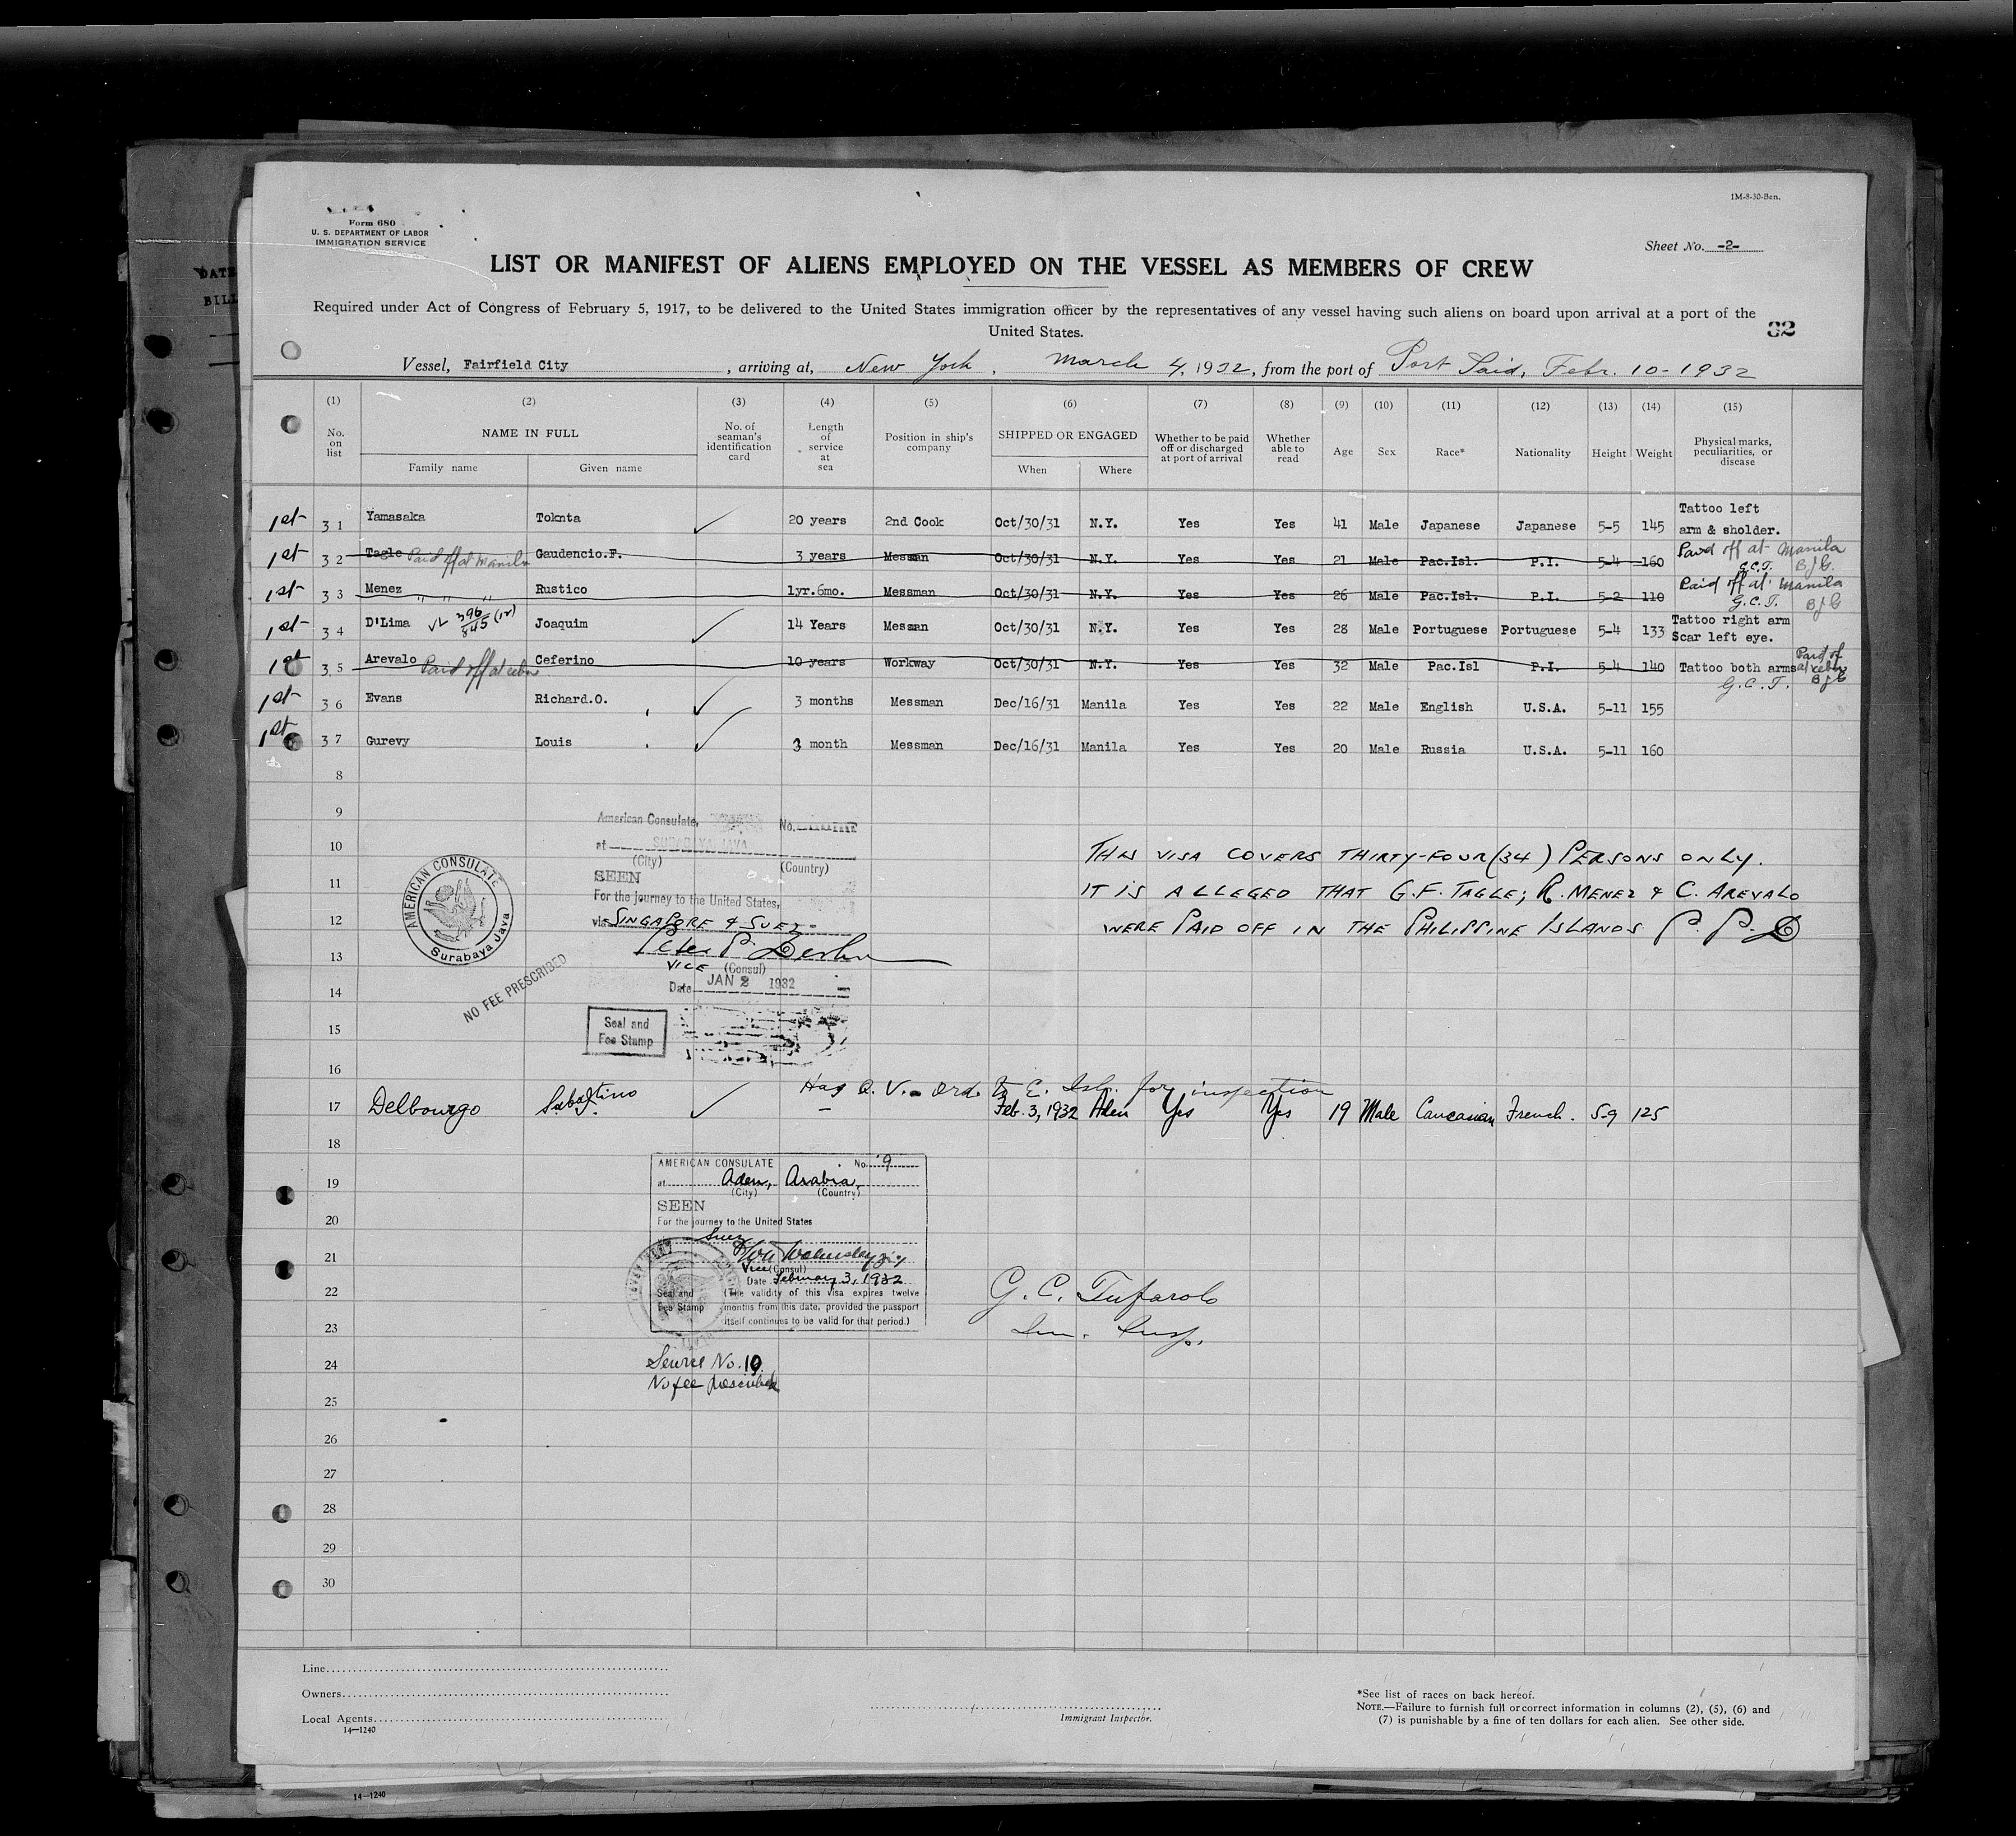 DATE
BILL
1M-8-30-Ben.
Form 680
U. S. DEPARTMENT OF LABOR
IMMIGRATION SERVICE
Sheet No. -2-
LIST OR MANIFEST OF ALIENS EMPLOYED ON THE VESSEL AS MEMBERS OF CREW
Required under Act of Congress of February 5, 1917, to be delivered to the United States immigration officer by the representatives of any vessel having such aliens on board upon arrival at a port of the
United States.
32
Vessel, Fairfield City, arriving at, New York, March 4, 1932, from the port of Port Said, Febr. 10-1932
(1) (2) (3) (4) (5) (6) (7) (8) (9) (10) (11) (12) (13) (14) (15)
No. on list NAME IN FULL Family name Given name No. of seaman's identification card Length of service at sea Position in ship's company SHIPPED OR ENGAGED When Where Whether to be paid off or discharged at port of arrival Whether able to read Age Sex Race* Nationality Height Weight Physical marks, peculiarities, or disease
1st 31 Yamasaka Toknta ✓ 20 years 2nd Cook Oct/30/31 N.Y. Yes Yes 41 Male Japanese Japanese 5-5 145 Tattoo left arm & sholder.
1st 32 Tagle Paid off at Manila Gaudencio.F. 3 years Messman Oct/30/31 N.Y. Yes Yes 21 Male Pac.Isl. P.I. 5-4 160 Paid off at Manila G.C.T. BJG.
1st 33 Menez " " " Rustico 1yr.6mo. Messman Oct/30/31 N.Y. Yes Yes 26 Male Pac.Isl. P.I. 5-2 110 Paid off at Manila G.C.T. BJG
1st 34 D'Lima 396/845 (12) Joaquim ✓ 14 Years Messman Oct/30/31 N.Y. Yes Yes 28 Male Portuguese Portuguese 5-4 133 Tattoo right arm Scar left eye.
1st 35 Arevalo Paid off at cebu Ceferino 10 years Workway Oct/30/31 N.Y. Yes Yes 32 Male Pac.Isl P.I. 5-4 140 Tattoo both arms G.C.T. Paid of at cebu BJG
1st 36 Evans Richard.O. ✓ 3 months Messman Dec/16/31 Manila Yes Yes 22 Male English U.S.A. 5-11 155
1st 37 Gurevy Louis ✓ 3 month Messman Dec/16/31 Manila Yes Yes 20 Male Russia U.S.A. 5-11 160
8
9
American Consulate, No.
10
at SURABAYA JAVA
(City) (Country)
THIS VISA COVERS THIRTY-FOUR (34) PERSONS ONLY.
11
SEEN
For the journey to the United States,
IT IS ALLEGED THAT G.F. TAGLE; R. MENEZ & C. AREVALO
AMERICAN CONSULATE
Surabaya Java
12
via SINGAPORE & SUEZ
WERE PAID OFF IN THE PHILIPPINE ISLANDS P. P. D
13
VICE (Consul)
Date JAN 2 1932
NO FEE PRESCRIBED
14
15
Seal and
Fee Stamp
16
Has Q. V. - Ord. to E. Isl. for inspection
17 Delbourgo Sabatino ✓ — Feb. 3, 1932 Aden Yes Yes 19 Male Caucasian French. 5-9 125
18
AMERICAN CONSULATE No. 9
19
at Aden, Arabia
(City) (Country)
SEEN
20
For the journey to the United States
Suez
21
Vice (Consul)
Date February 3, 1932
22
Seal and
Fee Stamp
(The validity of this visa expires twelve
months from this date, provided the passport
itself continues to be valid for that period.)
G. C. Tufarolo
23
Imm. Insp.
24
Service No. 19
No fee prescribed
25
26
27
28
29
30
Line
Owners
Local Agents
14—1240
Immigrant Inspector.
*See list of races on back hereof.
NOTE.—Failure to furnish full or correct information in columns (2), (5), (6) and
(7) is punishable by a fine of ten dollars for each alien. See other side.
14—1240